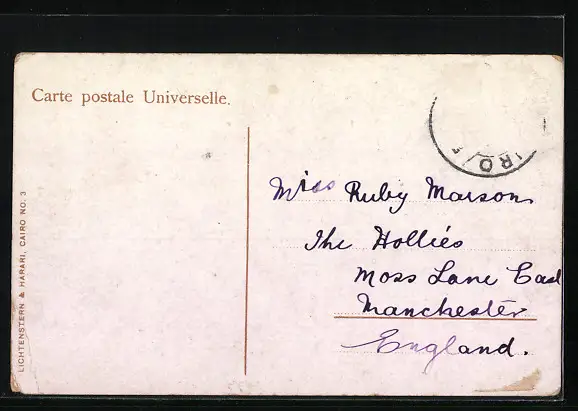 Carte postale Universelle.
LICHTENSTERN & HARARI, CAIRO NO. 3
Miss Ruby Marsons
The Hollies
Moss Lane East
Manchester
England.